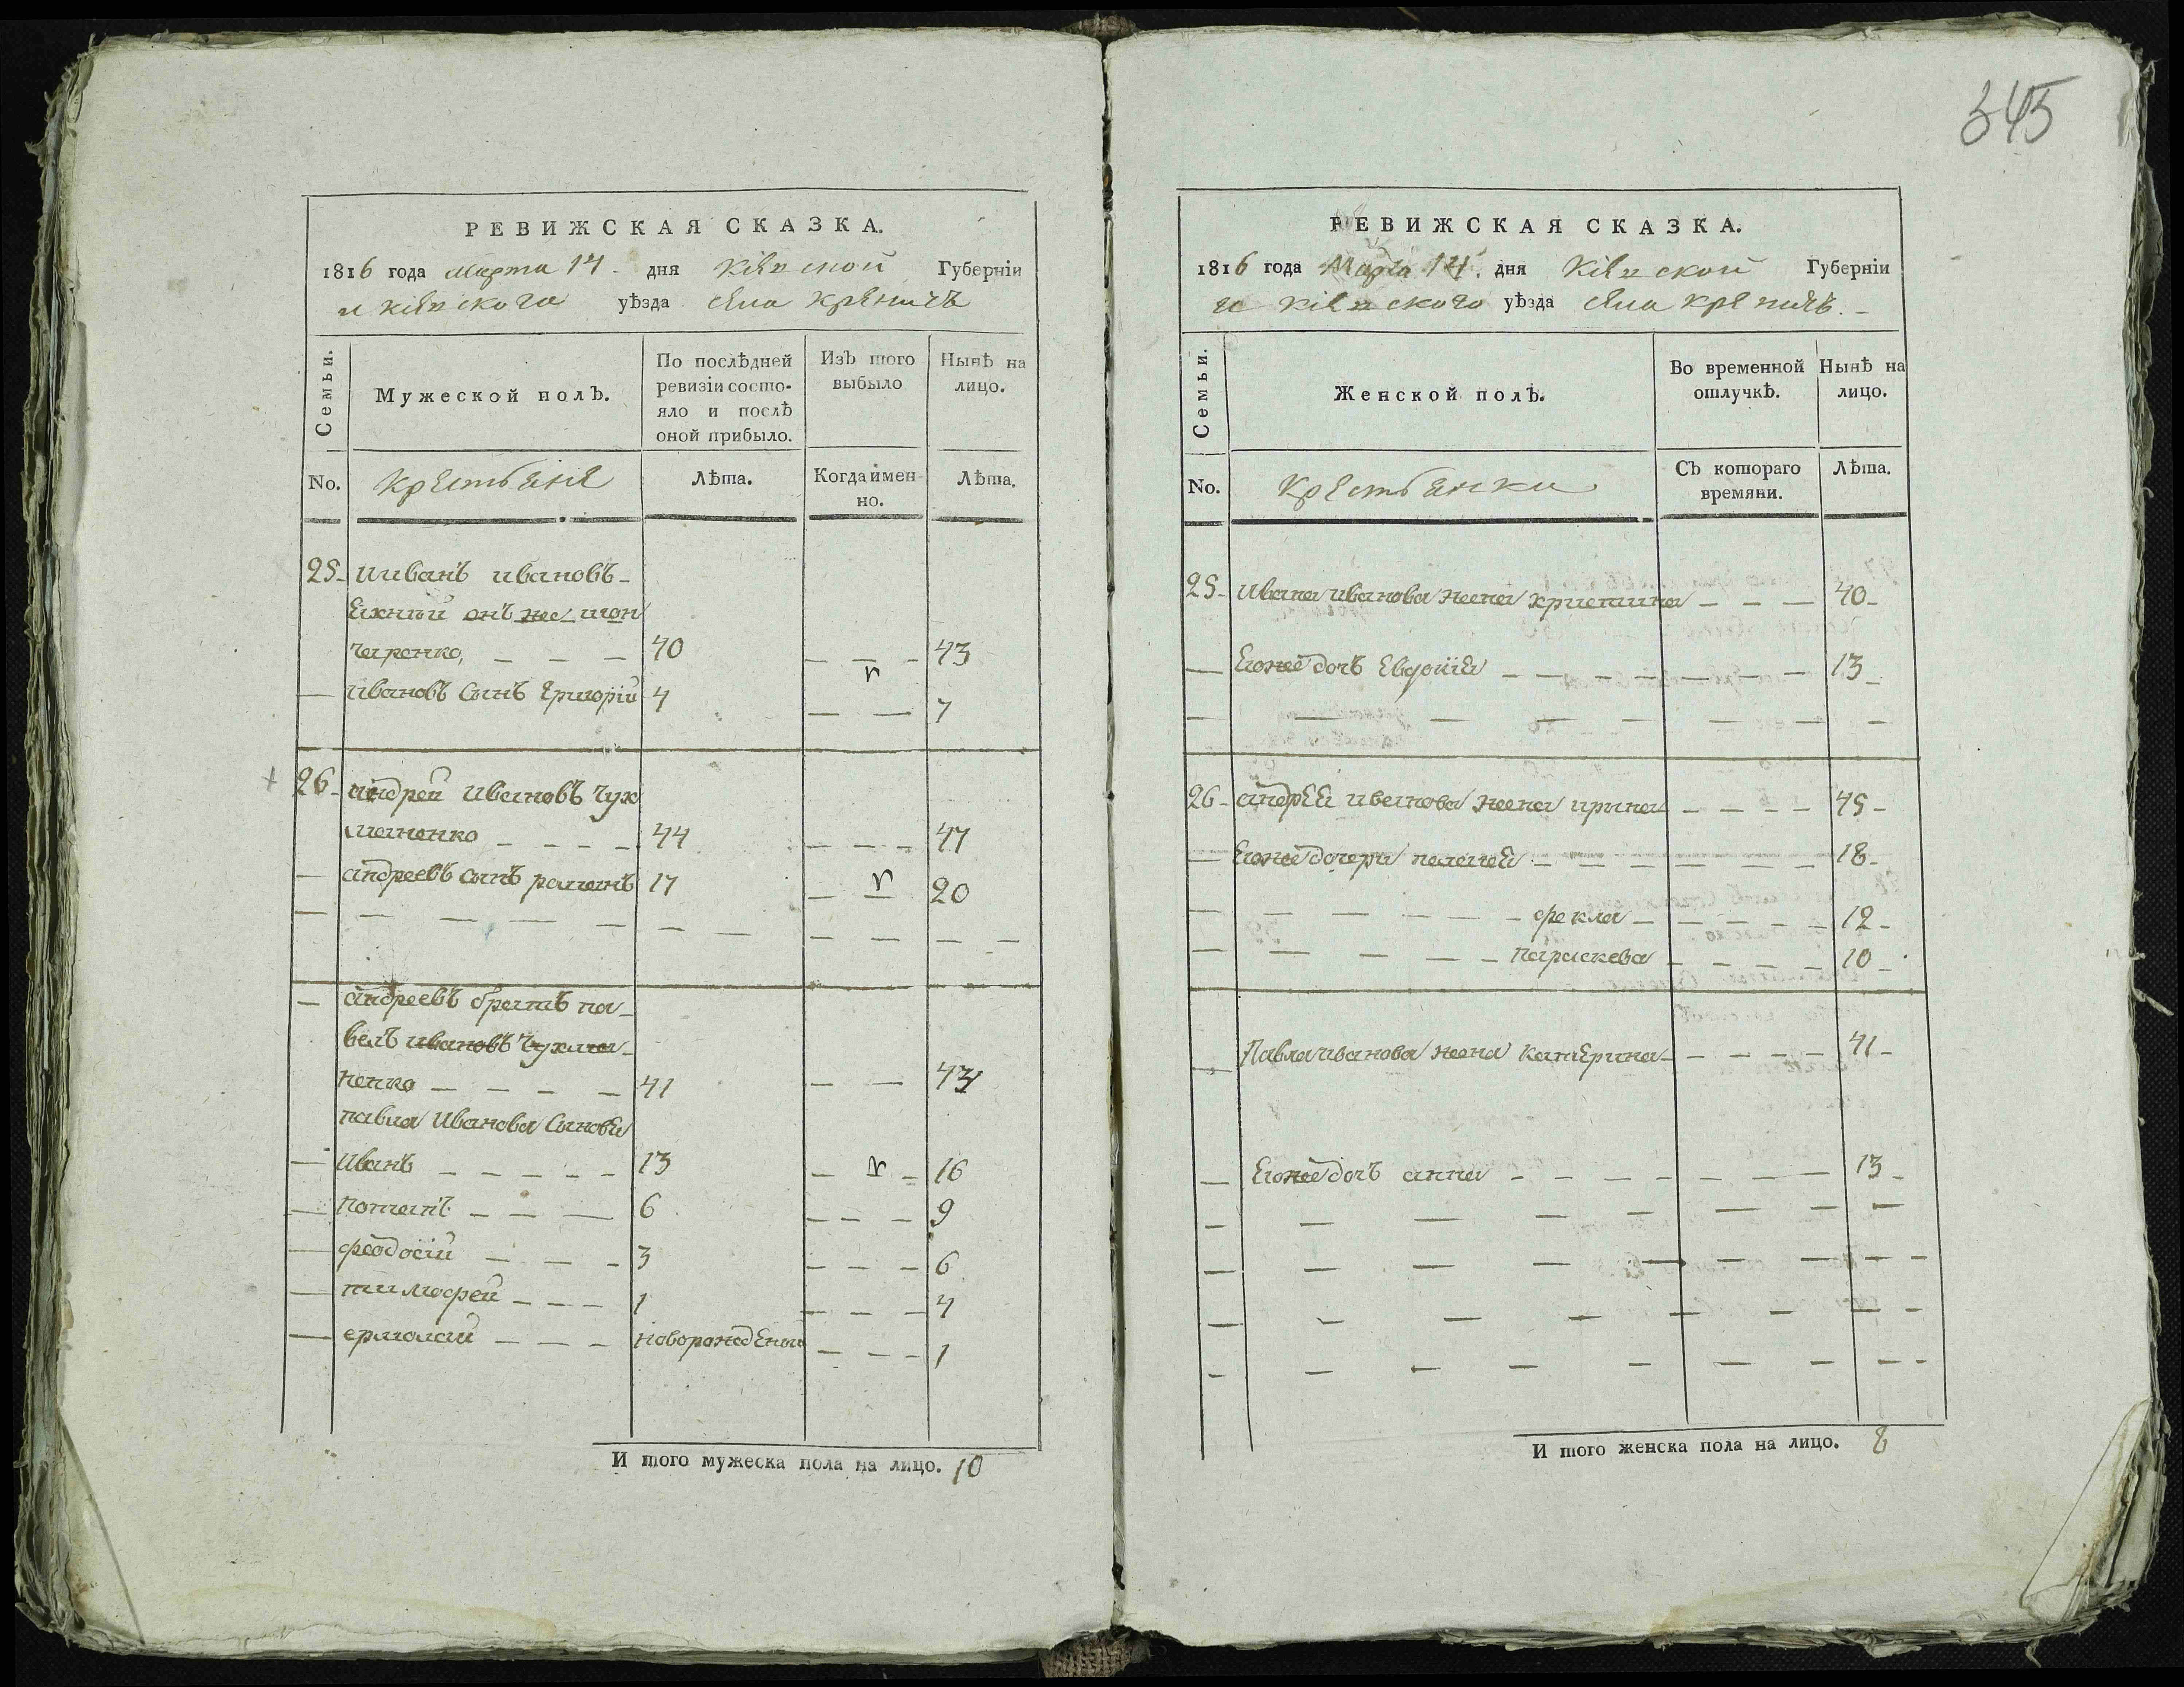 345
РЕВИЖСКАЯ СКАЗКА.
1816 года марта 14 дня Кіевской Губерніи
и Кіевского уѣзда села Креничъ
Семьи.
Мужеской полъ.
По послѣдней ревизіи состояло и послѣ оной прибыло.
Изъ того выбыло
Нынѣ на лицо.
No.
Крестьяне
Лѣта.
Когда имен-
но.
Лѣта.
25 Иванъ ивановъ
онъ же
40 43
ивановъ сынъ Григорій 4 7
26 андрей ивановъ Чух
маненко 44 47
андреевъ сынъ раманъ 17 20
андреевъ братъ па
велъ ивановъ Чухма
ненко 41 43
павла Иванова сыновья
Иванъ 13 16
потапъ 6 9
феодосій 3 6
тимофей 1 4
ермолай новорожденый 1
И того мужеска пола на лицо. 10
РЕВИЖСКАЯ СКАЗКА.
1816 года Марта 14 дня Кіевской Губерніи
и Кіевского уѣзда села Креничъ.
Семьи.
Женской полъ.
Во временной отлучкѣ.
Нынѣ на лицо.
No.
Крестьянки
Съ котораго
времяни.
Лѣта.
25 Ивана иванова жена христина 40
Егоже дочъ Евдокія 13
26 андрея иванова жена ирина 45
Егоже дочери пелагея 18
фекла 12
параскева 10
Павла иванова жена катерина 41
Егоже дочъ анна 13
И того женска пола на лицо. 8